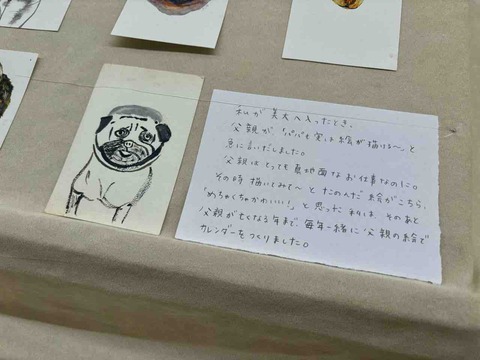 私が美大へ入ったとき、
父親が、「パパも実は絵が描ける〜」と
急に言いだしました。
父親はとっても真面目なお仕事なのに。
その時描いてみて〜とたのんだ絵がこちら。
「めちゃくちゃかわいい!」と思った私は、そのあと
父親が亡くなる年まで、毎年一緒に父親の絵で
カレンダーをつくりました。